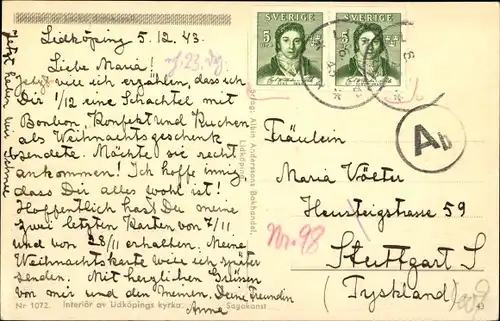 Lidköping 5.12.43.
Liebe Maria!
Jetzt will ich erzählen, dass ich
Dir 1/12 eine Schachtel mit
Bonbon, Konfekt und Kuchen
als Weihnachtsgeschenk
sendete. Möchte sie recht
ankommen! Ich hoffe innig
dass Dir alles wohl ist!
Hoffentlich hast Du meine
zwei letzten Karten von 7/11
und von 28/11 erhalten. Meine
Weihnachtskarte will ich später
senden. Mit herzlichen Grüssen
von mir und den Meinen. Deine Freundin
Anna
Jetzt haben wir Schnee
Nr 1072. Interiör av Lidköpings kyrka. Sagakonst
Förlag: Albin Anderssons Bokhandel, Lidköping
SVERIGE
5
ÖRE
SVERIGE
5
ÖRE
Ab
Fräulein
Maria
Heusteigstrasse 59
Nr. 98
Stuttgart S
(Tyskland)
43